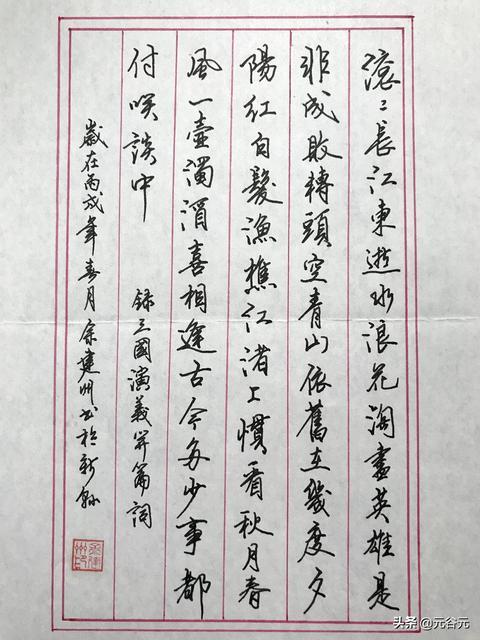 滾〻長江東逝水浪花淘盡英雄是
非成敗轉頭空青山依舊在幾度夕
陽紅白髮漁樵江渚上慣看秋月春
風一壺濁酒喜相逢古今多少事都
付咲談中
録三國演義開篇詞
歲在丙戌年春月余建州书於新縣
头条 @元谷元